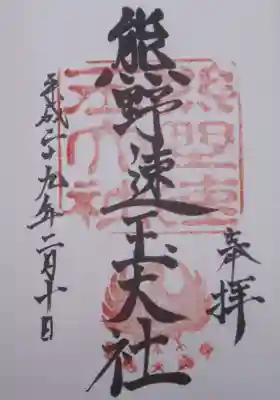 奉拝
熊野速玉大社
熊野速
玉大社
平成二十九年二月十日